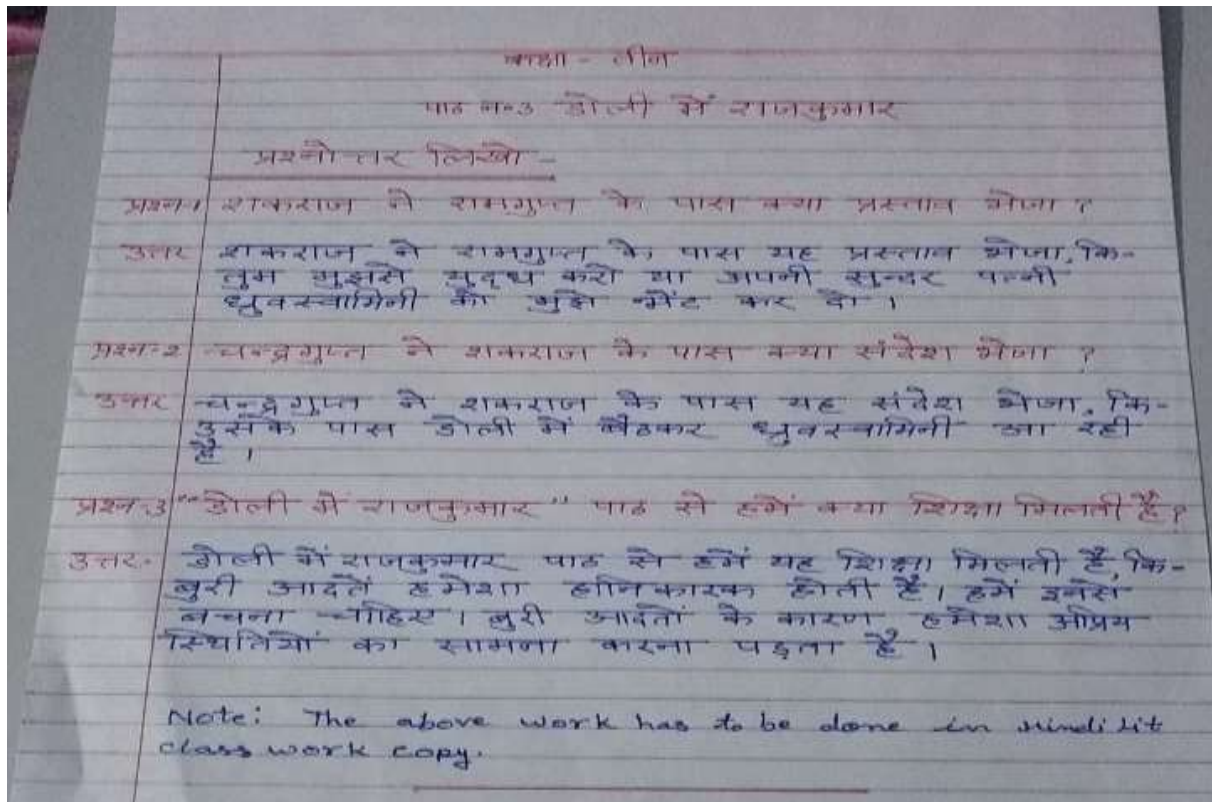 कक्षा - तीन
पाठ न०3 डोली में राजकुमार
प्रश्नोत्तर लिखो -
प्रश्न-1 शकराज ने रामगुप्त के पास क्या प्रस्ताव भेजा ?
उत्तर शकराज ने रामगुप्त के पास यह प्रस्ताव भेजा, कि-
तुम मुझसे युद्ध करो या अपनी सुन्दर पत्नी
ध्रुवस्वामिनी को मुझे भेंट कर दो ।
प्रश्न-2 चन्द्रगुप्त ने शकराज के पास क्या संदेश भेजा ?
उत्तर चन्द्रगुप्त ने शकराज के पास यह संदेश भेजा, कि-
उसके पास डोली में बैठकर ध्रुवस्वामिनी आ रही
है ।
प्रश्न-3 "डोली में राजकुमार" पाठ से हमें क्या शिक्षा मिलती है?
उत्तर- डोली में राजकुमार पाठ से हमें यह शिक्षा मिलती है, कि-
बुरी आदतें हमेशा हानिकारक होती है । हमें इनसे
बचना चाहिए । बुरी आदतों के कारण हमेशा अप्रिय
स्थितियों का सामना करना पड़ता है ।
Note: The above work has to be done in Hindi lit
class work copy.